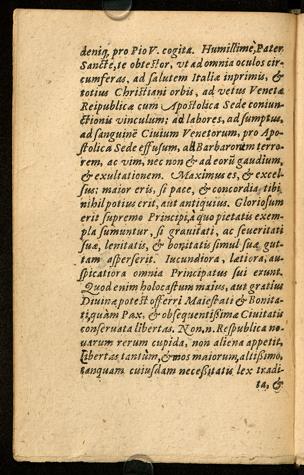 deniq, pro Pio V. cogita. Humillimè, Pater
Sancte, te obtestor, vt ad omnia oculos cir-
cumferas, ad salutem Italiæ inprimis, &
totius Christiani orbis, ad vetus Venetæ
Reipublicæ cum Apostolica Sede coniun-
ctionis vinculum; ad labores, ad sumptus,
ad sanguinẽ Ciuium Venetorum, pro Apo-
stolica Sede effusum, ad Barbarorum terro-
rem, ac vim, nec non & ad eorũ gaudium,
& exultationem. Maximus es, & excel-
sus: maior eris, si pace, & concordia tibi
nihil potius erit, aut antiquius. Gloriosum
erit supremo Principi, à quo pietatis exem-
pla sumuntur, si grauitati, ac seueritati
suæ, lenitatis, & bonitatis simul suæ gut-
tam asperserit. Iucundiora, lætiora, au-
spicatiora omnia Principatus sui erunt.
Quod enim holocaustum maius, aut gratius
Diuinæ potest offerri Maiestati & Bonita-
ti, quàm Pax, & obsequentissimæ Ciuitatis
conseruata libertas. Non, n. Respublica no-
uarum rerum cupida, non aliena appetit,
Libertas tantùm, & mos maiorum, altissimo,
tanquam cuiusdam necessitatis lex tradi-
ta, &